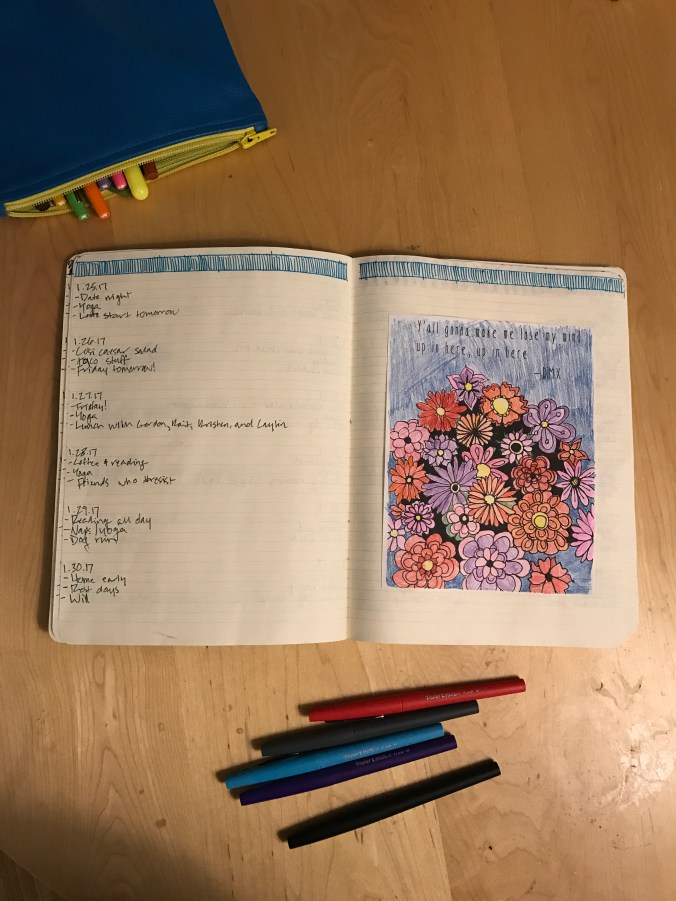 1.25.17
- Date night
- Yoga
- Late start tomorrow
1.26.17
- Cosi caesar salad
- stuff
- Friday tomorrow!
1.27.17
- Friday!
- Yoga
- Lunch with Gordon, Kait, Kristen, and
1.28.17
- Coffee & reading
- Yoga
- Friends who #resist
1.29.17
- Reading all day
- Naps/yoga
- Dog
1.30.17
- Home early
- Rest days
- Will
Y'all gonna make me lose my mind
up in here, up in here
-DMX